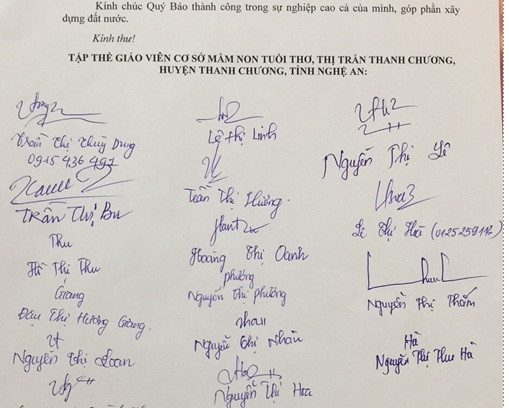 Kính chúc Quý Báo thành công trong sự nghiệp cao cả của mình, góp phần xây
dựng đất nước.
Kính thư!
TẬP THỂ GIÁO VIÊN CƠ SỞ MẦM NON TUỔI THƠ, THỊ TRẤN THANH CHƯƠNG,
HUYỆN THANH CHƯƠNG, TỈNH NGHỆ AN:
Trần Thị Thùy Dung
0915 436 491
Trần Thị Bu
Thu
Hồ Thị Thu
Giang
Đậu Thị Hương Giang.
Nguyễn Thị Loan
Lê Thị Linh
Trần Thị Hường.
Hoàng Thị Oanh
phương
Nguyễn Thị Phương
Nguyễn Thị Nhàn
Nguyễn Thị Hoa
Nguyễn Thị Lê
Lê Thị Hoà
Nguyễn Thị Thắm
Hà
Nguyễn Thị Thu Hà